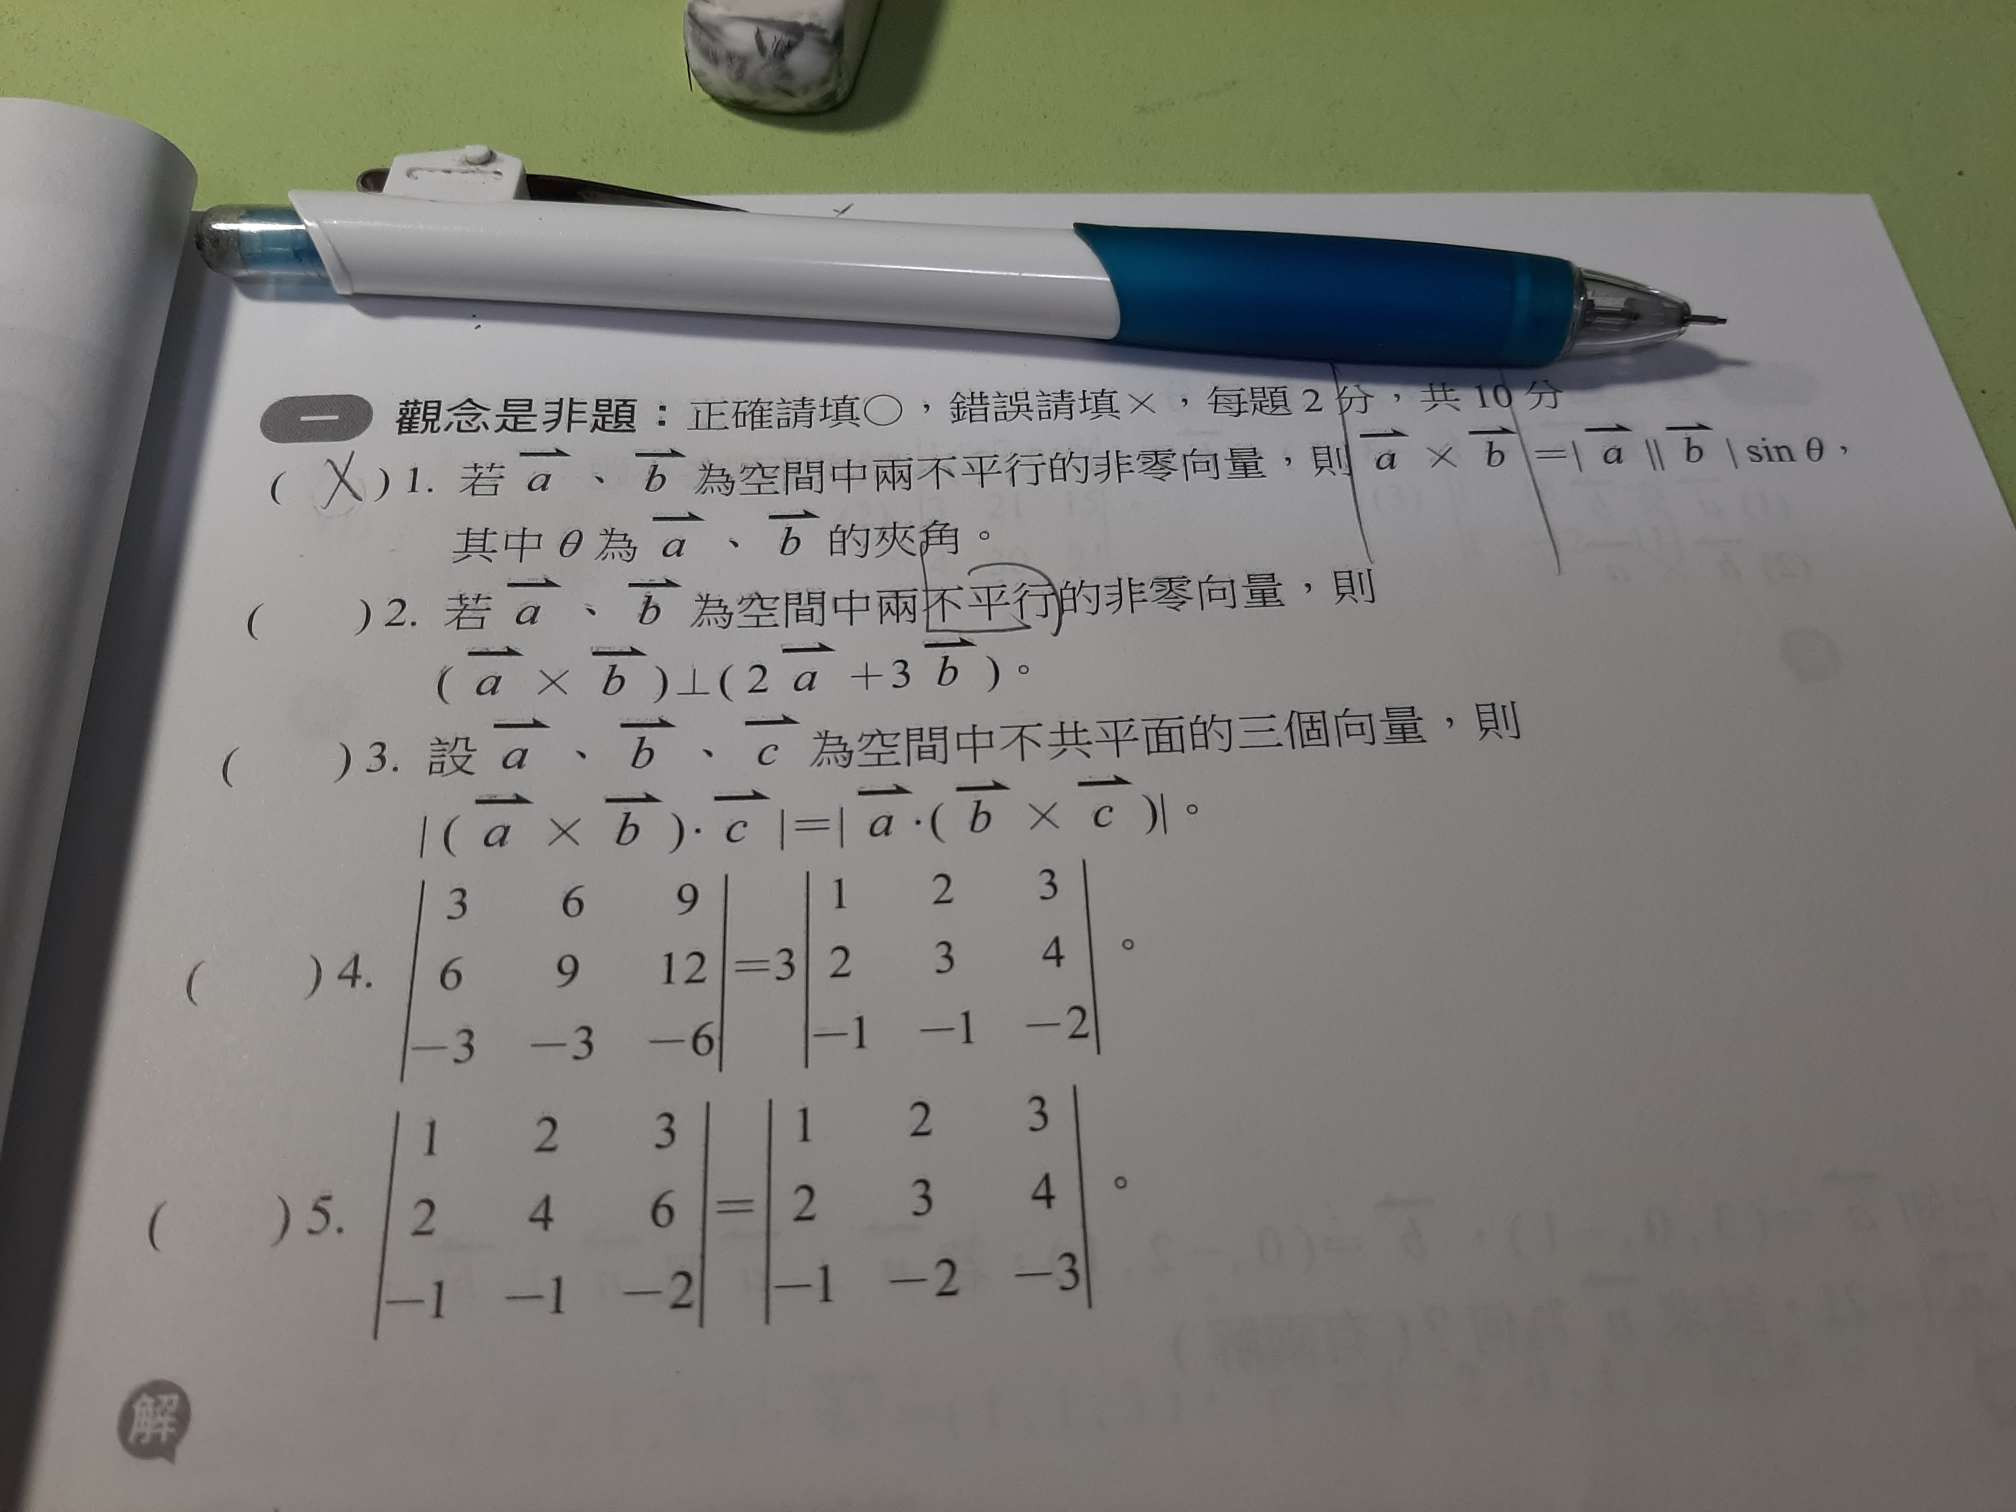 一 觀念是非題：正確請填○，錯誤請填×，每題2分，共10分
( X ) 1. 若 a⃗、b⃗ 為空間中兩不平行的非零向量，則 a⃗ × b⃗ =| a⃗ || b⃗ | sin θ，
其中 θ 為 a⃗、b⃗ 的夾角。
( ) 2. 若 a⃗、b⃗ 為空間中兩不平行的非零向量，則
( a⃗ × b⃗ )⊥( 2 a⃗ +3 b⃗ )。
( ) 3. 設 a⃗、b⃗、c⃗ 為空間中不共平面的三個向量，則
| ( a⃗ × b⃗ )· c⃗ |=| a⃗ ·( b⃗ × c⃗ )|。
| 3 6 9 | | 1 2 3 |
( ) 4. | 6 9 12 |=3| 2 3 4 |。
| −3 −3 −6 | | −1 −1 −2 |
| 1 2 3 | | 1 2 3 |
( ) 5. | 2 4 6 |=| 2 3 4 |。
| −1 −1 −2 | | −1 −2 −3 |
解